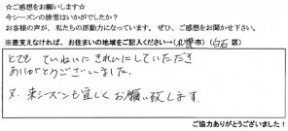 ☆ご感想をお願いします☆
今シーズンの接客はいかがでしたか?
お客様の声が、私たちの原動力になっています。ぜひ、ご感想をお聞かせ下さい。
※差支えなければ、お住まいの地域をご記入ください→(札幌市)(白石区)
とても ていねいに きれいにしていただき
ありがとうございました。
又、来シーズンも宜しくお願い致します。
ご協力ありがとうございました!